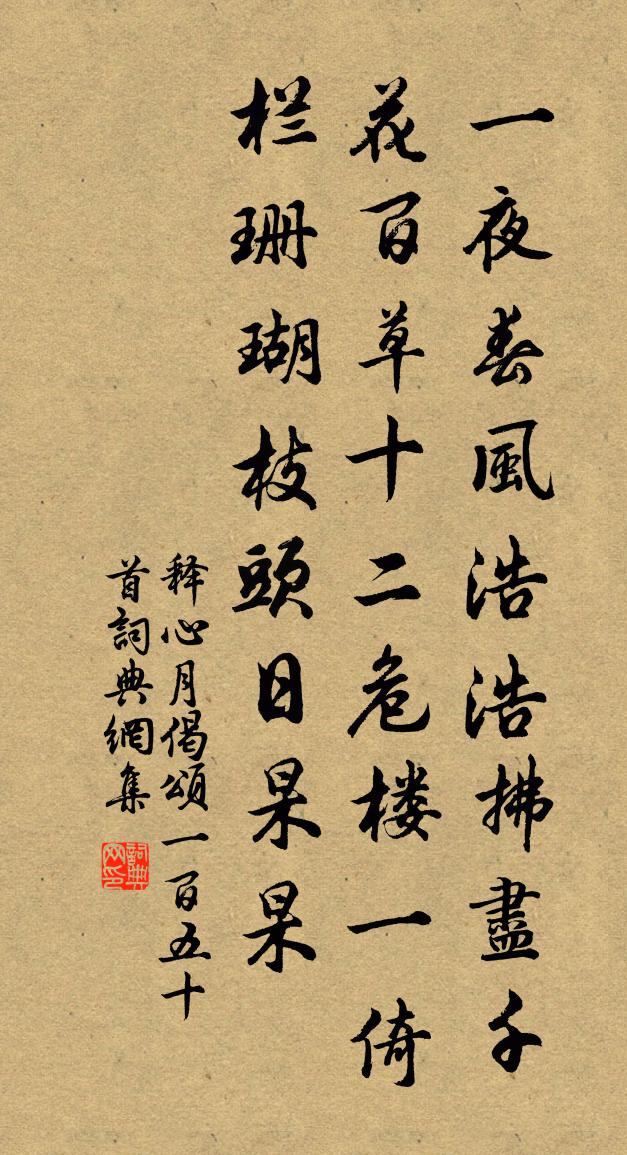 一夜春風浩浩拂盡千
花百草十二危楼一倚
栏珊瑚枝頭日杲杲
释心月偈頌一百五十
首詞典網集
詞典网印